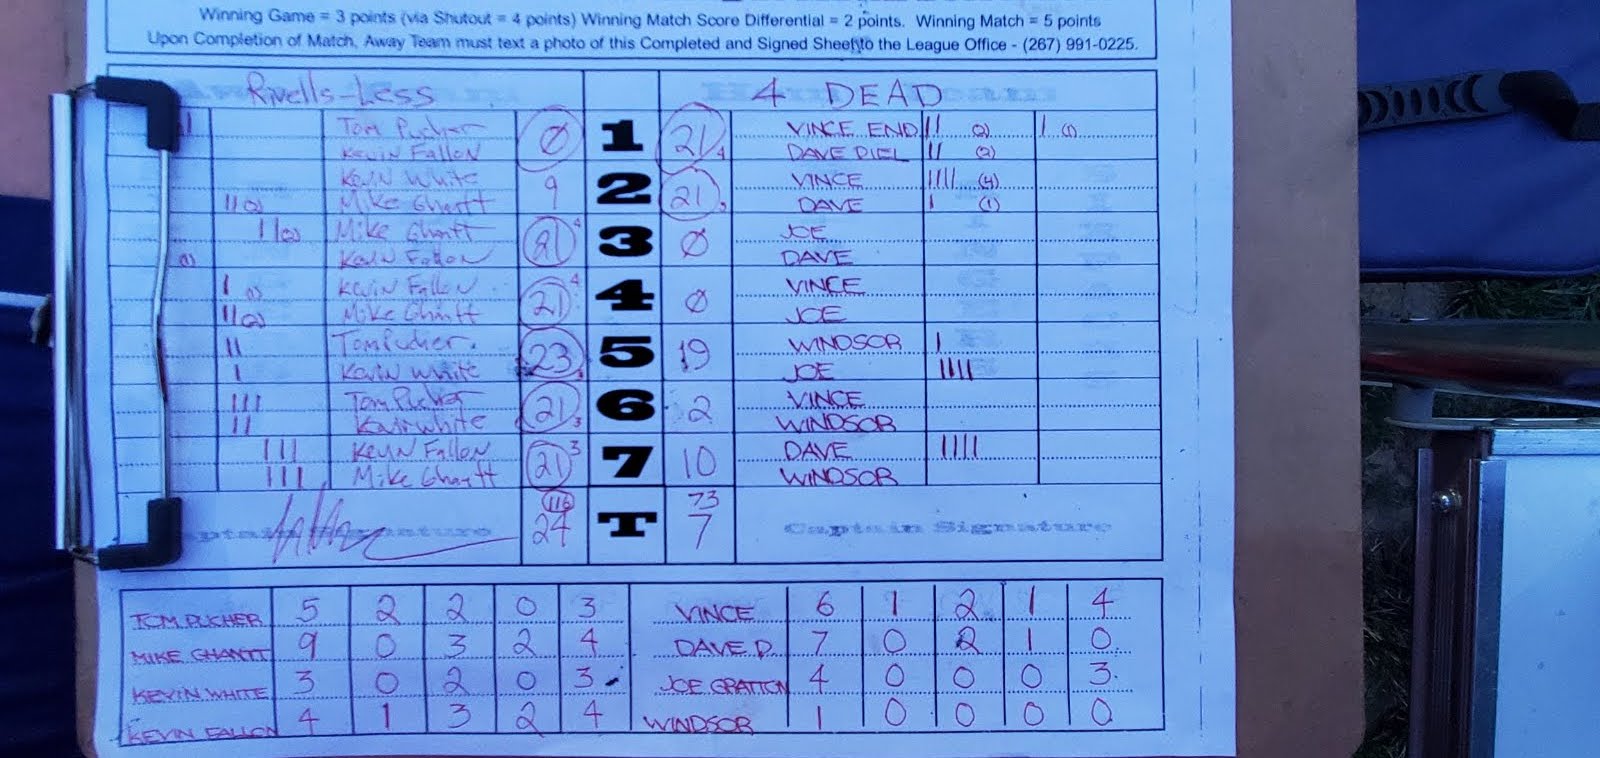 Winning Game = 3 points (via Shutout = 4 points) Winning Match Score Differential = 2 points. Winning Match = 5 points
Upon Completion of Match, Away Team must text a photo of this Completed and Signed Sheet to the League Office - (267) 991-0225.
Rivells-Less 4 DEAD
Tom Pucher Ø 1 21 4 VINCE END II (2) I (1)
Kevin Fallon DAVE DIEL II (2)
Kevin White 9 2 21 3 VINCE IIII (4)
II (2) Mike Ghantt DAVE I (1)
II (2) Mike Ghantt 21 4 3 Ø JOE
(1) Kevin Fallon DAVE
I (1) Kevin Fallon 21 4 4 Ø VINCE
II (2) Mike Ghantt JOE
II Tom Pucher. 23 5 19 WINDSOR I
I Kevin White JOE IIII
III Tom Pucher 21 3 6 2 VINCE
II Kevin White WINDSOR
III Kevin Fallon 21 3 7 10 DAVE IIII
III Mike Ghantt WINDSOR
116 73
Captain Signature 24 T 7 Captain Signature
TOM PUCHER 5 2 2 0 3 VINCE 6 1 2 1 4
MIKE GHANTT 9 0 3 2 4 DAVE D. 7 0 2 1 0
KEVIN WHITE 3 0 2 0 3 JOE GRATTON 4 0 0 0 3
KEVIN FALLON 4 1 3 2 4 WINDSOR 1 0 0 0 0